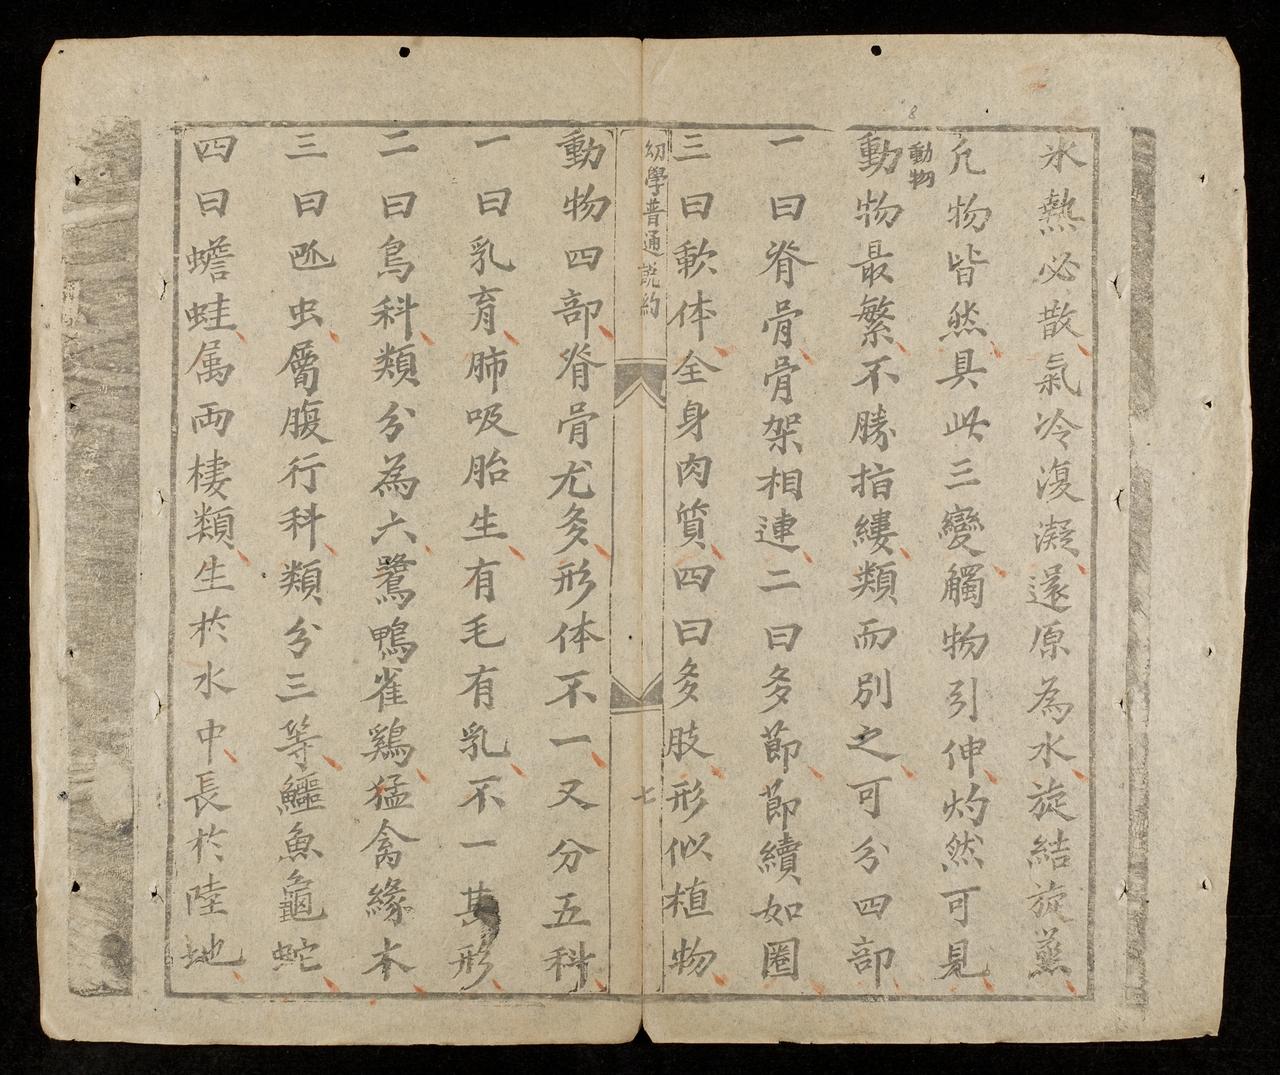 氷熱必散氣冷復凝還原為水旋結旋蒸
凡物皆然具此三變觸物引伸灼然可見
動物
動物最繁不勝指縷類而別之可分四部
一曰脊骨骨架相連二曰多節節續如圈
三曰軟体全身肉質四曰多肢形似植物
幼學普通説約
七
動物四部脊骨尤多形体不一又分五科
一曰乳育肺吸胎生有毛有乳不一其形
二曰鳥科類分為六鷺鴨雀鷄猛禽緣木
三曰虫屬腹行科類分三等鱷魚龜蛇
四曰蟾蛙属両棲類生於水中長於陸地
8